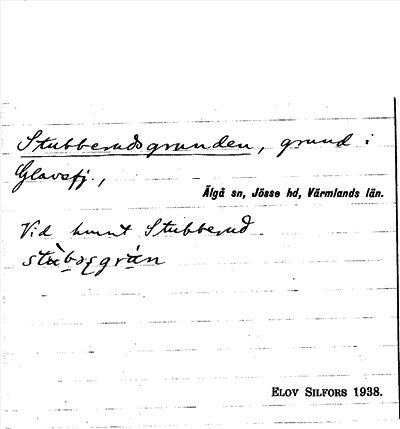 Stubberudsgrunden, grund i
Glavafj.,
Älgå sn, Jösse hd, Värmlands län.
Vid hmnt Stubberud.
ELOV SILFORS 1938.